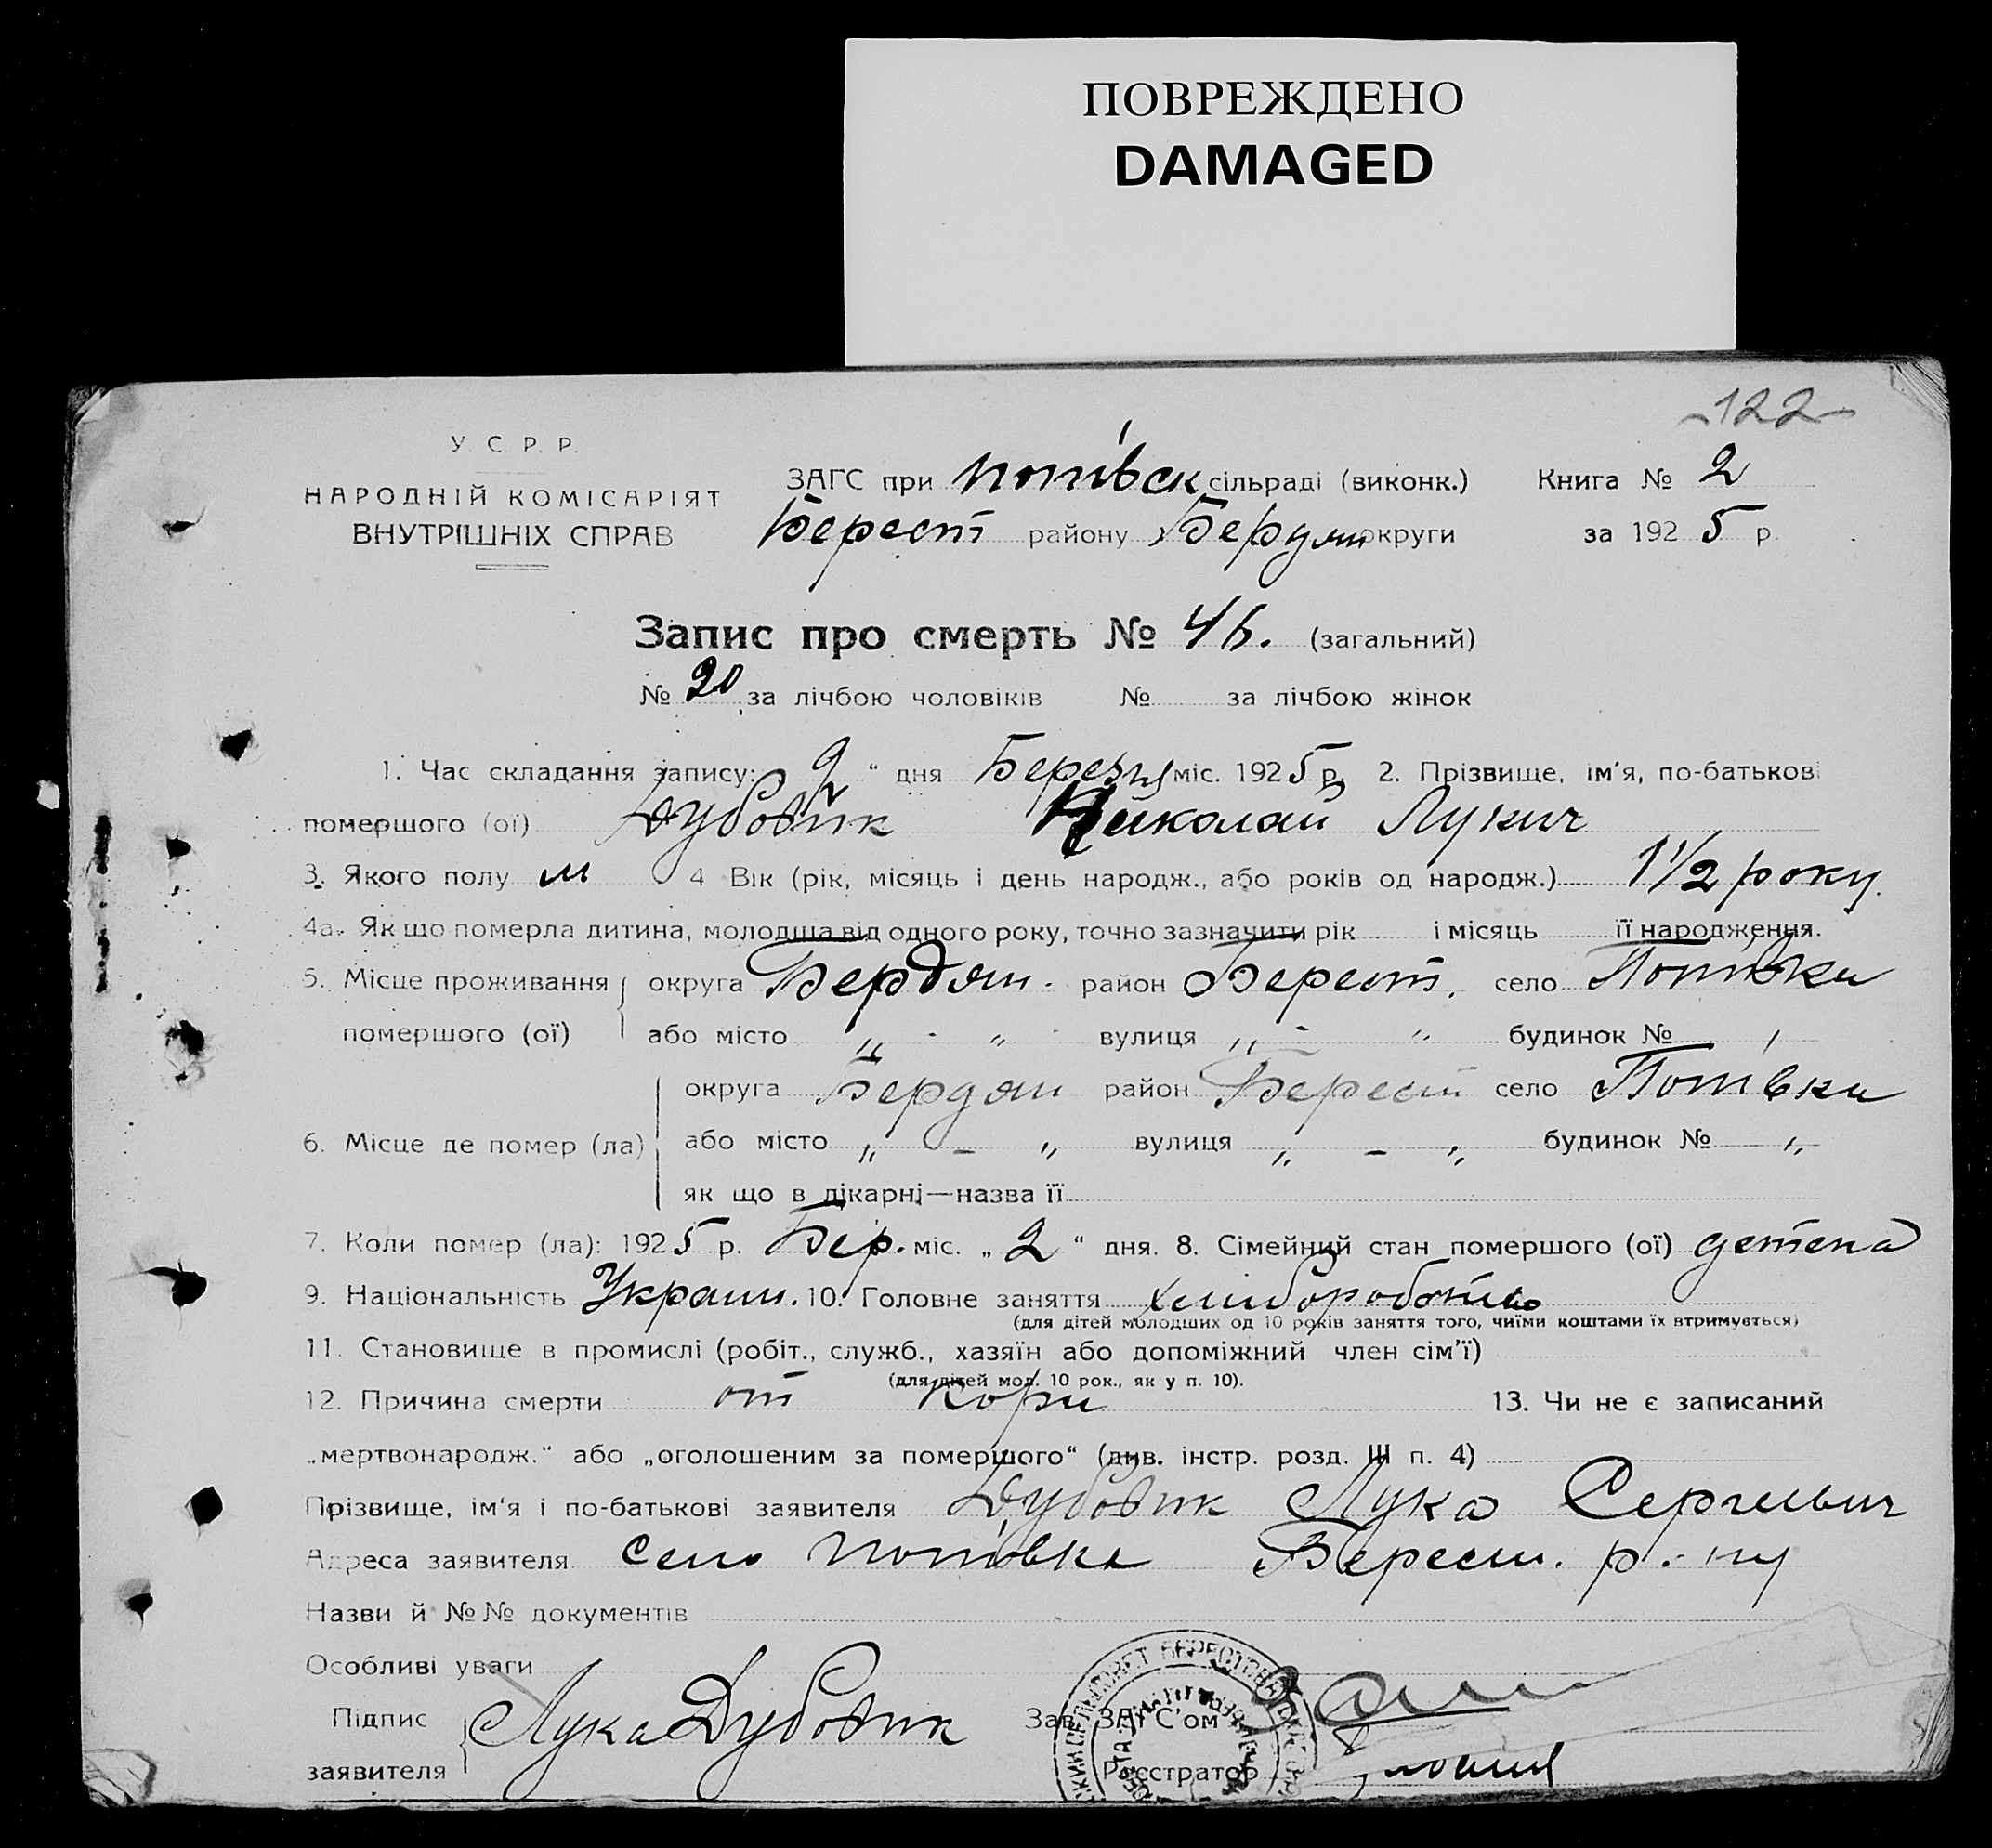 ПОВРЕЖДЕНО
DAMAGED
-122-
У. С. Р. Р.
НАРОДНІЙ КОМІСАРІЯТ
ВНУТРІШНІХ СПРАВ
ЗАГС при Потівск сільраді (виконк.)
Берест району Бердян округи
Книга № 2
за 1925 р.
Запис про смерть № 46. (загальний)
№ 20 за лічбою чоловіків № за лічбою жінок
1. Час складання запису: 9 " дня Березня міс. 1925 р, 2. Прізвище, ім'я, по-батькові
помершого (ої) Дубовик Николай Лукич
3. Якого полу м 4 Вік (рік, місяць і день народж., або років од народж.) 1 1/2 року
4а. Як що померла дитина, молодша від одного року, точно зазначити рік і місяць її народження.
5. Місце проживання помершого (ої) округа Бердян. район Берест. село Потівка
або місто „ - " вулиця „ - " будинок № "
6. Місце де помер (ла) округа Бердян район Берест село Потівка
або місто „ - „ вулиця „ - „ будинок № „
як що в лікарні—назва її
7. Коли помер (ла): 1925 р. Бер. міс. „ 2 " дня. 8. Сімейний стан помершого (ої) детена
9. Національність Украин. 10. Головне заняття
(для дітей молодших од 10 років заняття того, чиїми коштами їх втримується)
11. Становище в промислі (робіт., служб., хазяїн або допоміжний член сім'ї)
(для дітей мол. 10 рок., як у п. 10).
12. Причина смерти от кори 13. Чи не є записаний
„мертвонародж." або „оголошеним за помершого" (див. інстр. розд. III п. 4)
Прізвище, ім'я і по-батькові заявителя Дубовик Лука Сергиевич
Адреса заявителя Село Потівка Берест. р.-ну
Назви й №№ документів
Особливі уваги
Підпис заявителя Лука Дубовик
Зав. ЗАГС'ом
Реєстратор